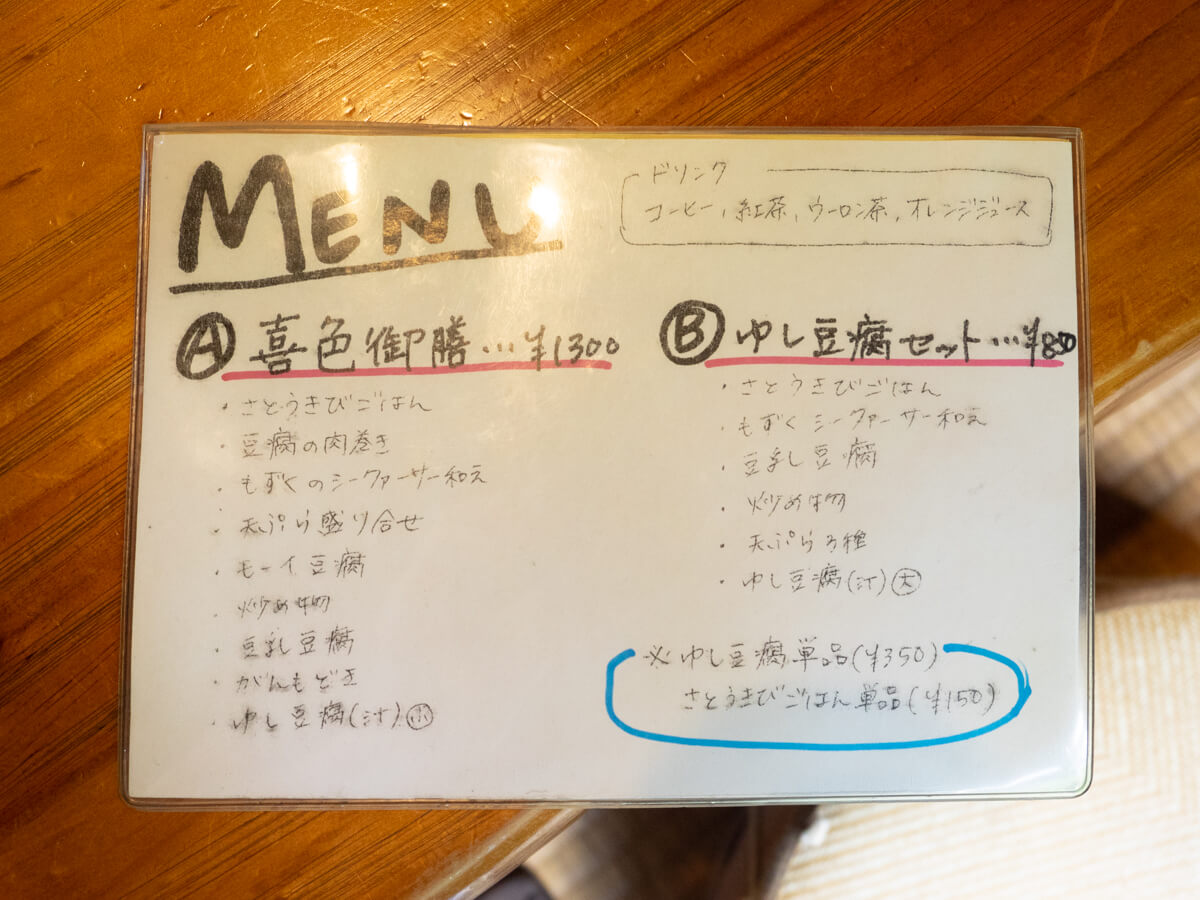 MENU
ドリンク
コーヒー, 紅茶, ウーロン茶, オレンジジュース
Ⓐ 喜色御膳…¥1300
・さとうきびごはん
・豆腐の肉巻き
・もずくのシークァーサー和え
・天ぷら盛り合せ
・モーイ豆腐
・炒め物
・豆乳豆腐
・がんもどき
・ゆし豆腐(汁)㊥
Ⓑ ゆし豆腐セット…¥850
・さとうきびごはん
・もずくシークァーサー和え
・豆乳豆腐
・炒め物
・天ぷら3種
・ゆし豆腐(汁)大
※ゆし豆腐単品(¥350)
さとうきびごはん単品(¥150)